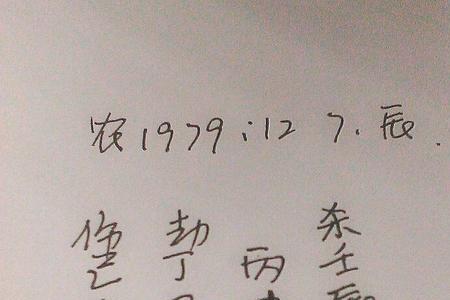 农1979:12 7.辰.
伤 劫 杀
己 丁 丙 壬